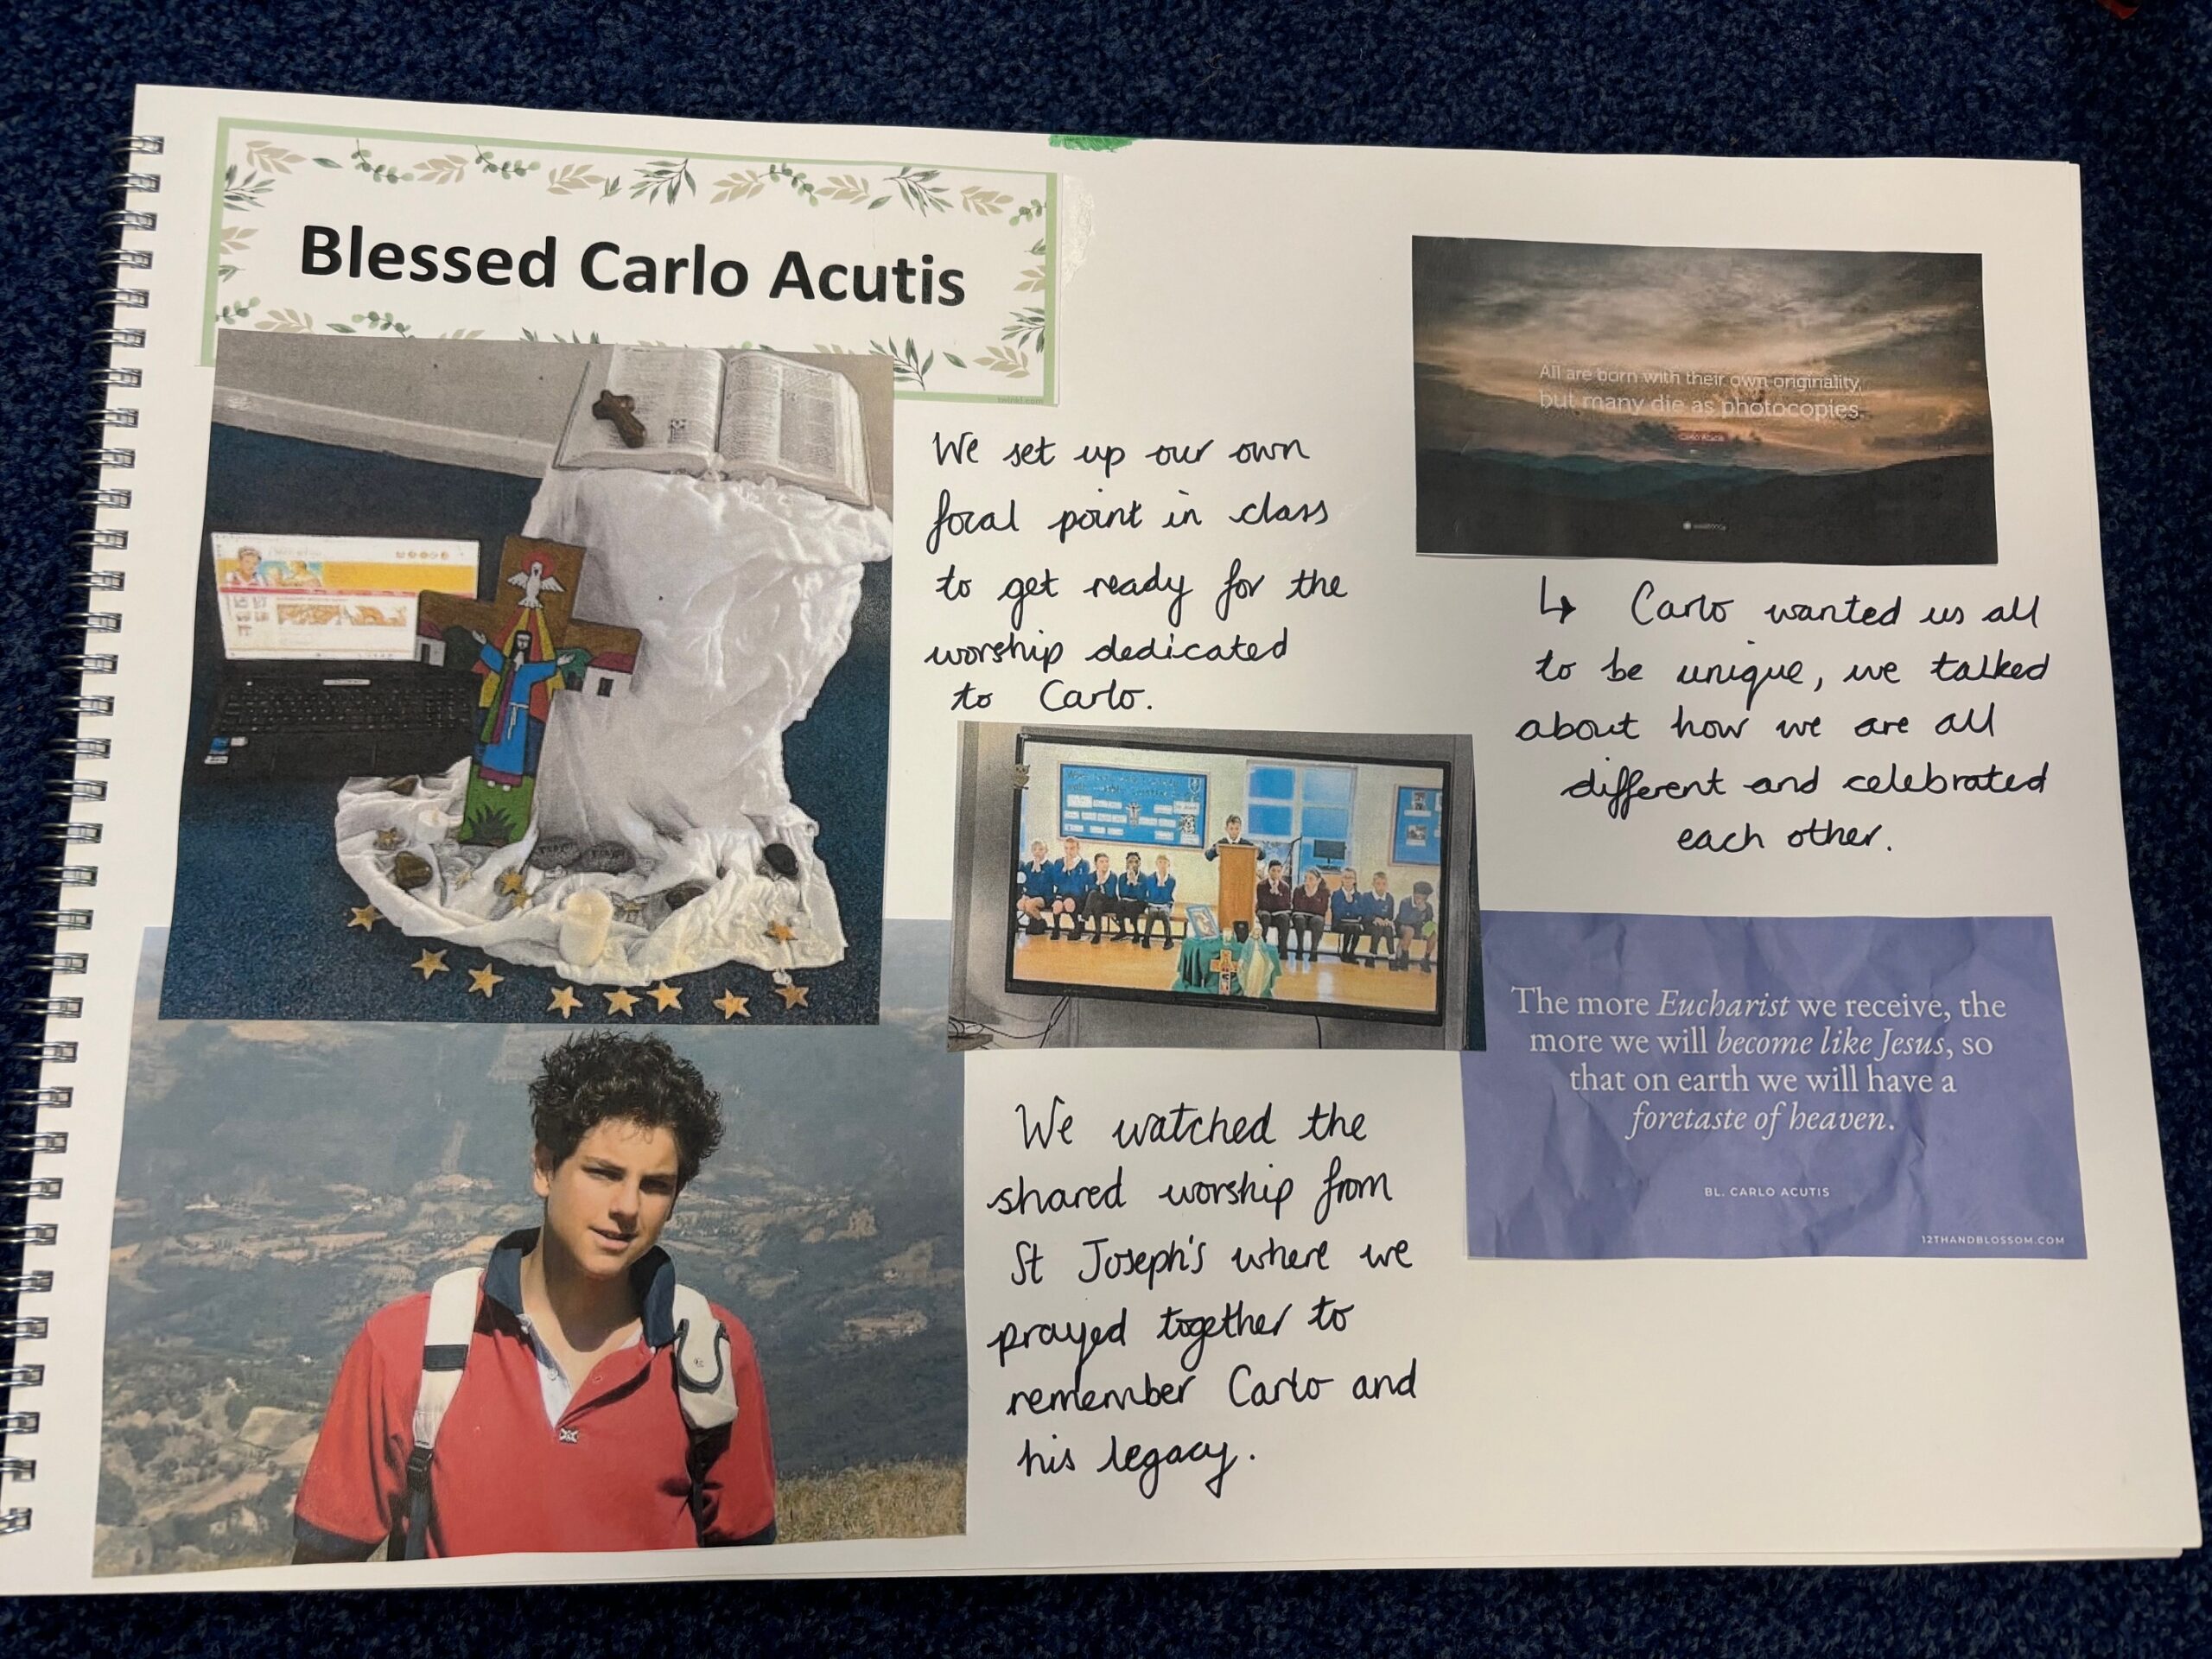 Blessed Carlo Acutis
twinkl.com
We set up our own
focal point in class
to get ready for the
worship dedicated
to Carlo.
We watched the
shared worship from
St Joseph's where we
prayed together to
remember Carlo and
his legacy.
All are born with their own originality,
but many die as photocopies.
Carlo Acutis
↳ Carlo wanted us all
to be unique, we talked
about how we are all
different and celebrated
each other.
The more Eucharist we receive, the
more we will become like Jesus, so
that on earth we will have a
foretaste of heaven.
BL. CARLO ACUTIS
12THANDBLOSSOM.COM